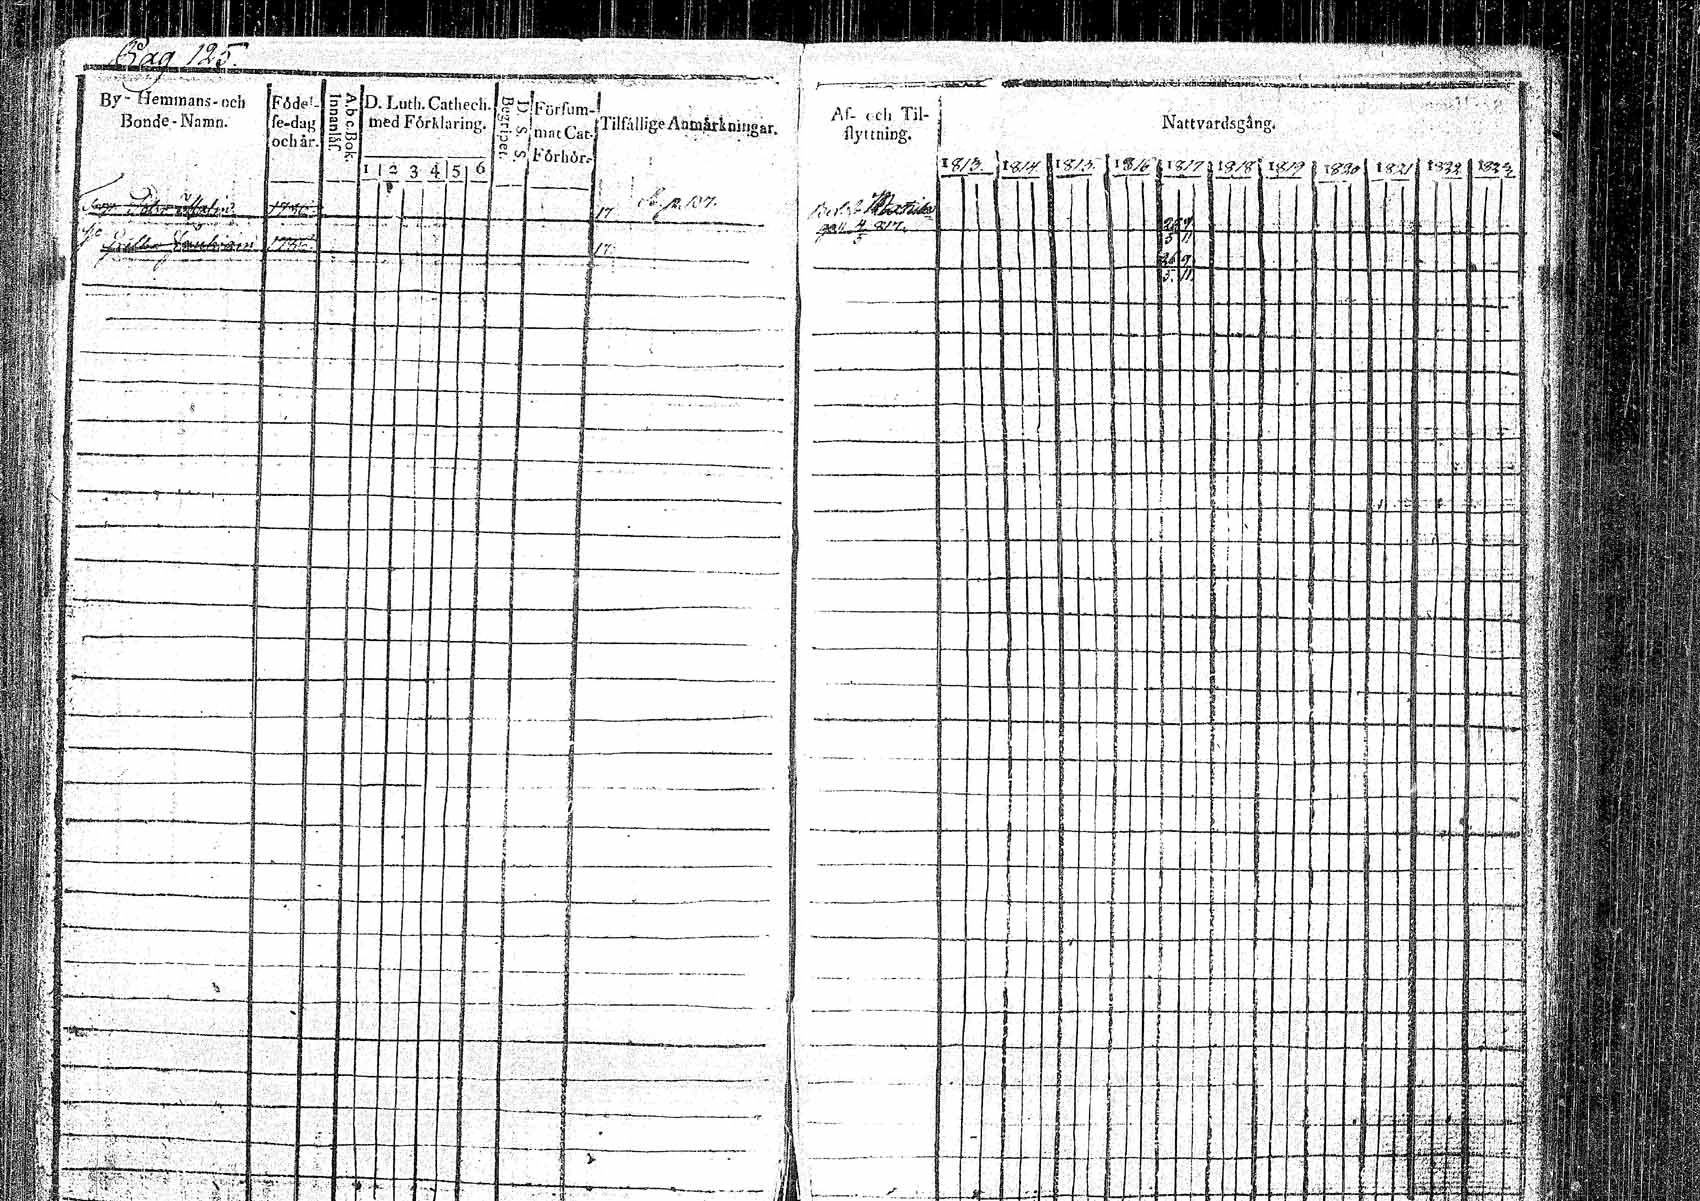 Pag 125.
By- Hemmans- och
Bonde-Namn.
Födel-
se-dag
och år.
Abc Bok.
Innanläs.
D. Luth. Cathech.
med Förklaring.
1 2 3 4 5 6
D. S. S.
Begriper.
Försum-
mat Cat.
Förhör.
Tilfällige Anmärkningar.
Af- och Til-
flyttning.
Nattvardsgång.
1813. 1814 1815 1816 1817 1818 1819 1820 1821 1822 1823
17
17
817.
26 9
5 11
26 9
5 11